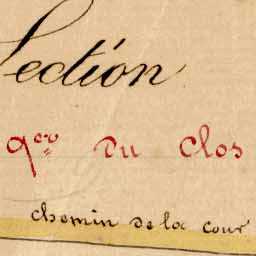 Section
qer du Clos
chemin de la cour